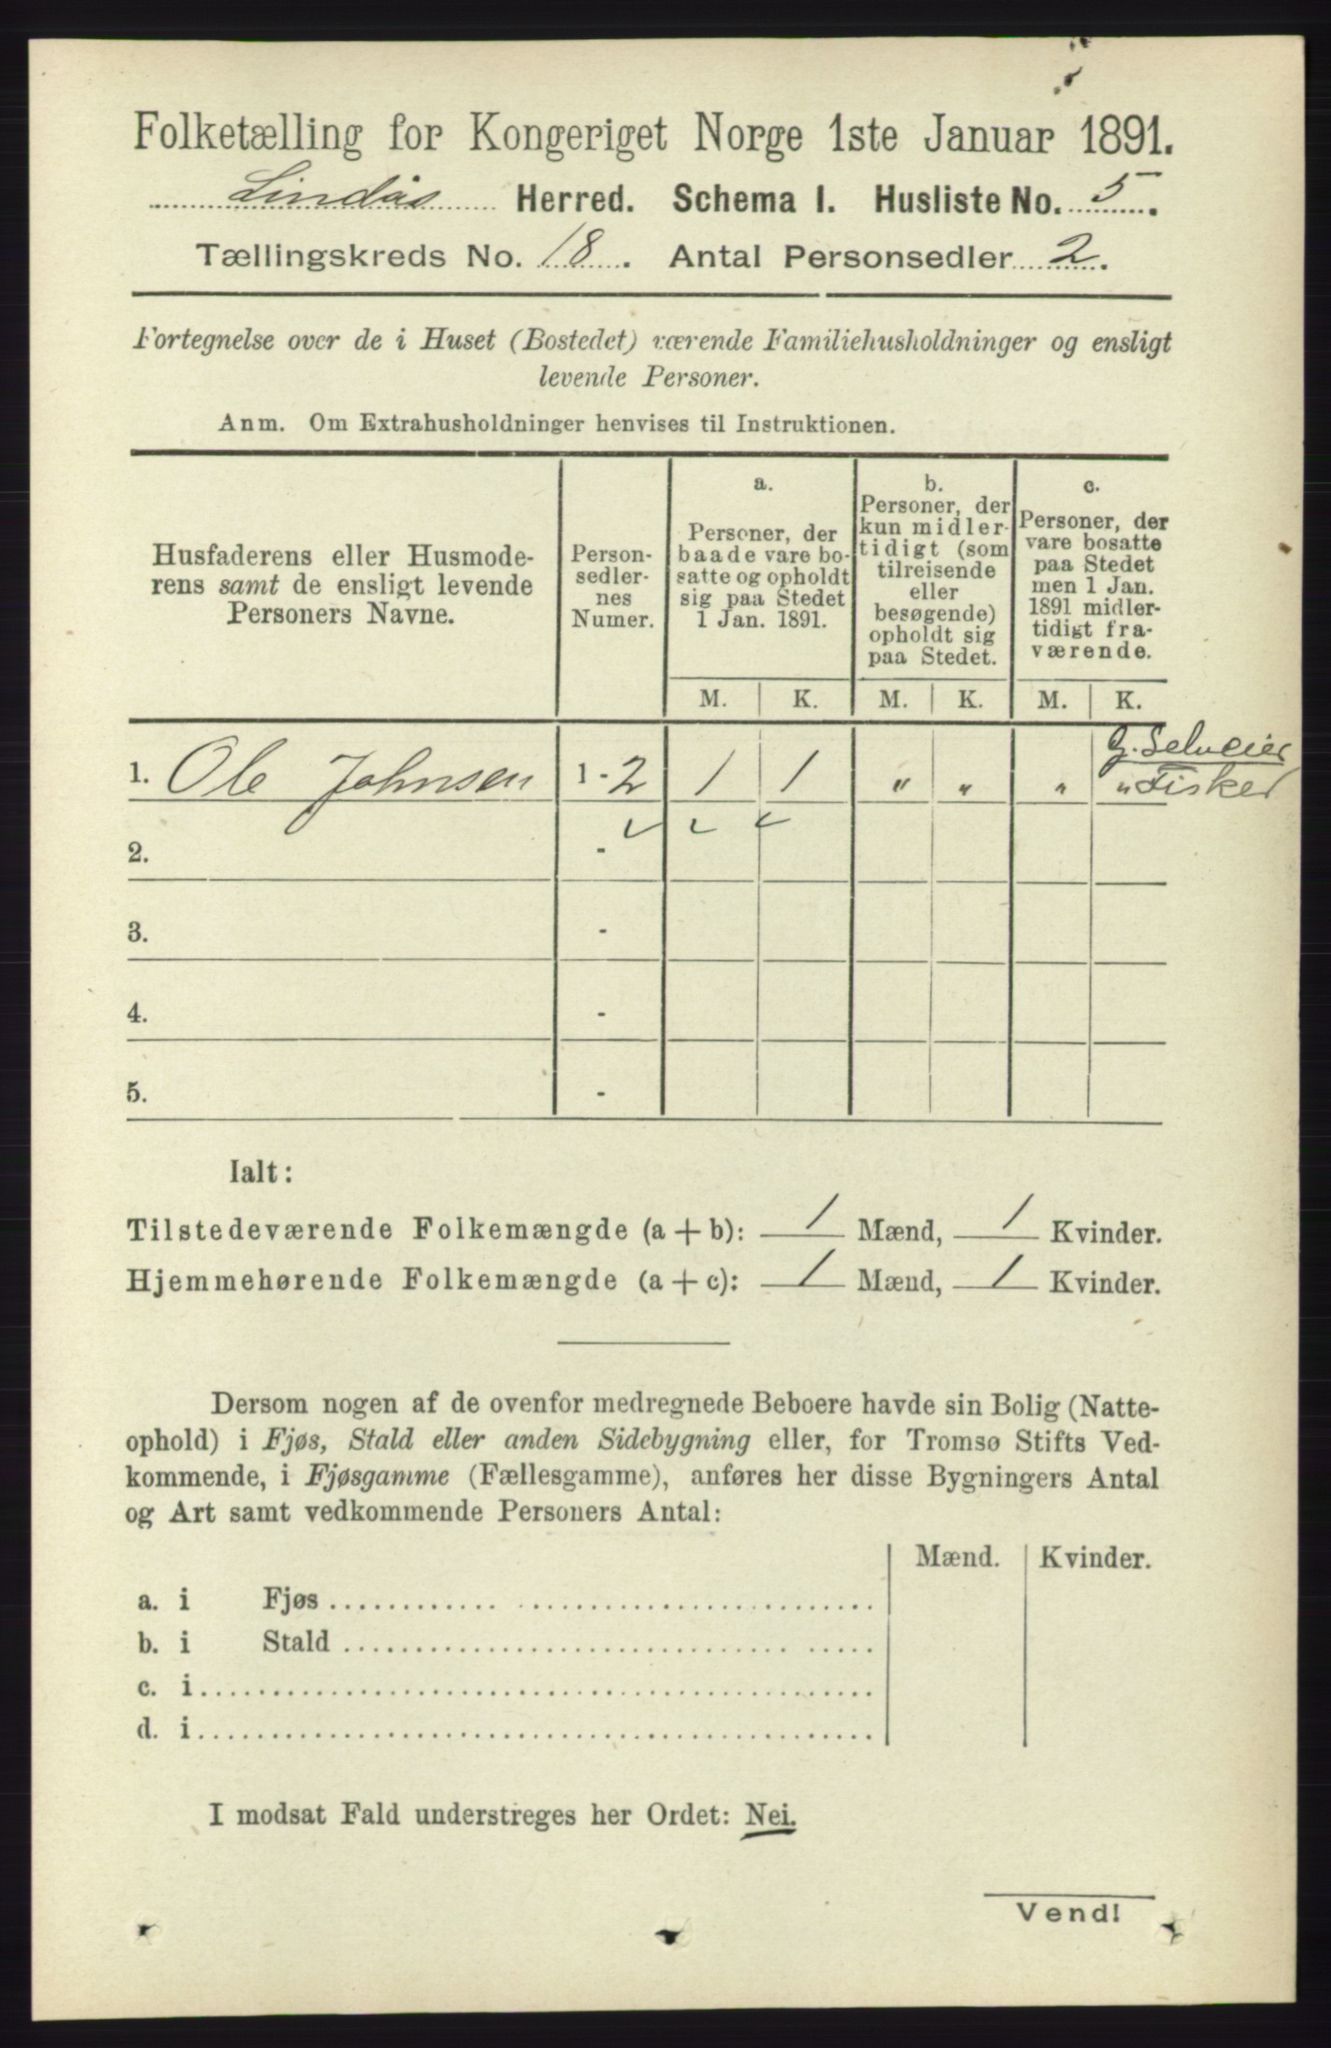 Folketælling for Kongeriget Norge 1ste Januar 1891.
Lindås Herred. Schema I. Husliste No. 5.
Tællingskreds No. 18. Antal Personsedler 2.
Fortegnelse over de i Huset (Bostedet) værende Familiehusholdninger og ensligt
levende Personer.
Anm. Om Extrahusholdninger henvises til Instruktionen.
Husfaderens eller Husmode-
rens samt de ensligt levende
Personers Navne.
Person-
sedler-
nes
Numer.
a.
Personer, der
baade vare bo-
satte og opholdt
sig paa Stedet
1 Jan. 1891.
b.
Personer, der
kun midler-
tidigt (som
tilreisende
eller
besøgende)
opholdt sig
paa Stedet.
c.
Personer, der
vare bosatte
paa Stedet
men 1 Jan.
1891 midler-
tidigt fra-
værende.
M. K. M. K. M. K.
G. Selveier
1. Ole Johnsen 1 - 2 1 1 " " " " Fisker
2. -
3. -
4. -
5. -
Ialt:
Tilstedeværende Folkemængde (a + b): 1 Mænd, 1 Kvinder.
Hjemmehørende Folkemængde (a + c): 1 Mænd, 1 Kvinder.
Dersom nogen af de ovenfor medregnede Beboere havde sin Bolig (Natte-
ophold) i Fjøs, Stald eller anden Sidebygning eller, for Tromsø Stifts Ved-
kommende, i Fjøsgamme (Fællesgamme), anføres her disse Bygningers Antal
og Art samt vedkommende Personers Antal:
Mænd. Kvinder.
a. i Fjøs
b. i Stald
c. i
d. i
I modsat Fald understreges her Ordet: Nei.
Vend!